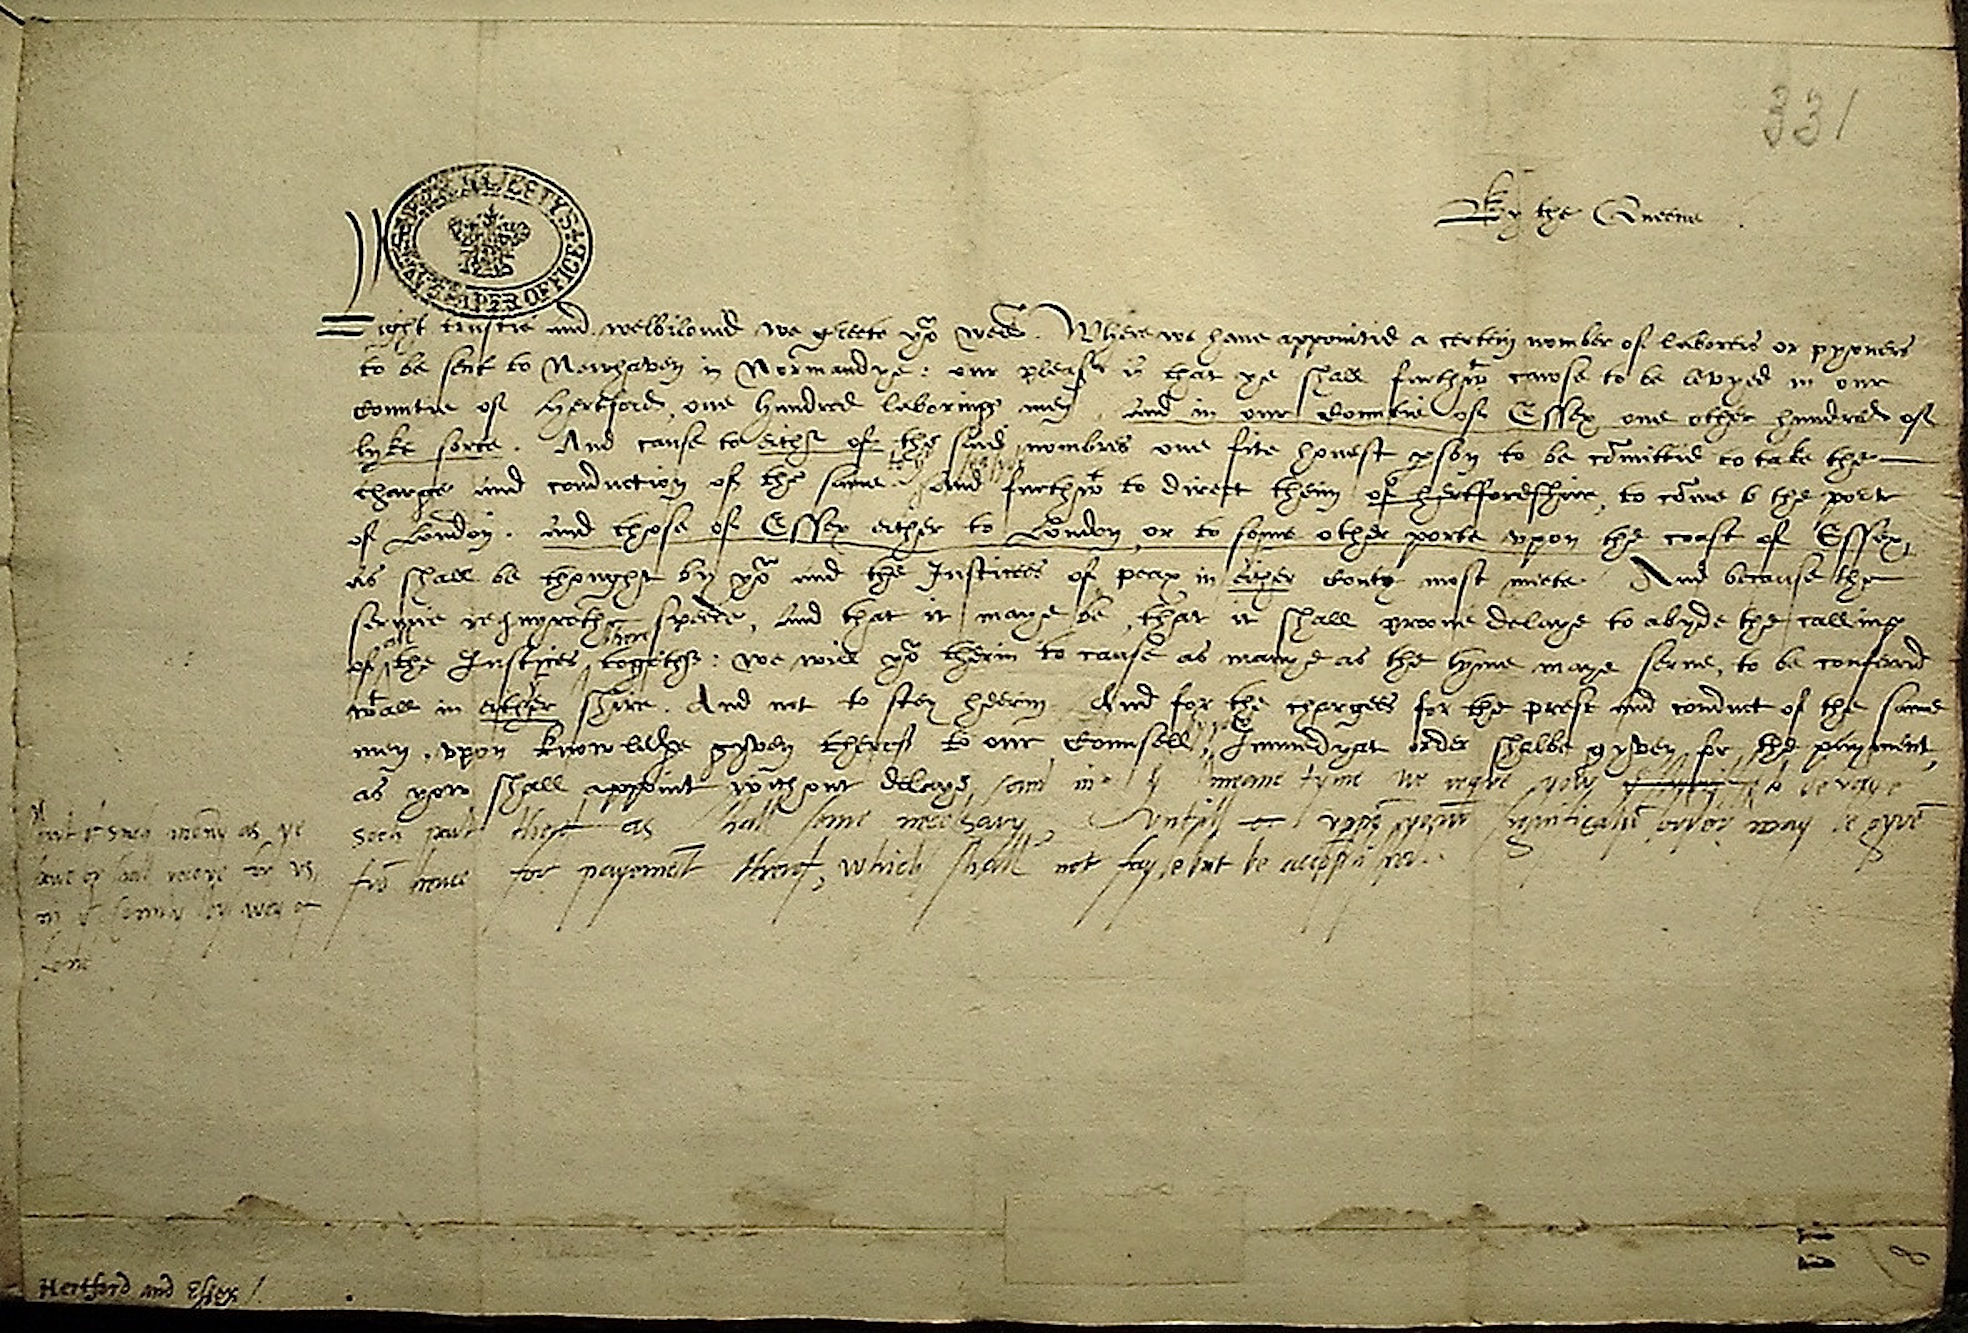 331
HER MAJESTYS STATE PAPER OFFICE
By the Queene
Right trustie and welbiloued we greete yow well. Where we haue appointid a certein nomber of laborers or pyoners
to be sent to Newhaven in Normandye: our pleasr is that ye shall furthwt cawse to be levyed in our
Countie of Hertford, one hundred laboringe men, And in our Countie of Essex one other hundred of
lyke sorte. And cause to eithr of the said nombres one fite honest pson to be comittid to take the
charge and conduction of the same. And furthwt to direct theim of hertfordshire, to come to the port
of London. And those of Essex either to London, or to some other porte vpon the coast of Essex,
as shall be thought by yow and the Justices of peax in either County most miete. And because the
seruice requyreth speede, And that it maye be, that it shall proove delaye to abyde the calling
of all the Justices there togethr: we will yow therin to cause as manye as the tyme maye serue, to be conferrid
wtall in either shire. And not to stey herin. And for the chargees for the prest and conduct of the same
men, vpon knowledge gyven therof to our Counsell, Immedyat order shalbe gyven for the payment,
as yow shall appoint without delaye, and in ye meane tyme we reqre yow to
such part therof as shall seme necessary, vntill order may be gyven
fro hence for payement therof, which shall not fayle but be accomplished.
out of such mony as ye
haue or shall receyve for vs
in yt county by way of
lone
Hertford and Essex /
8